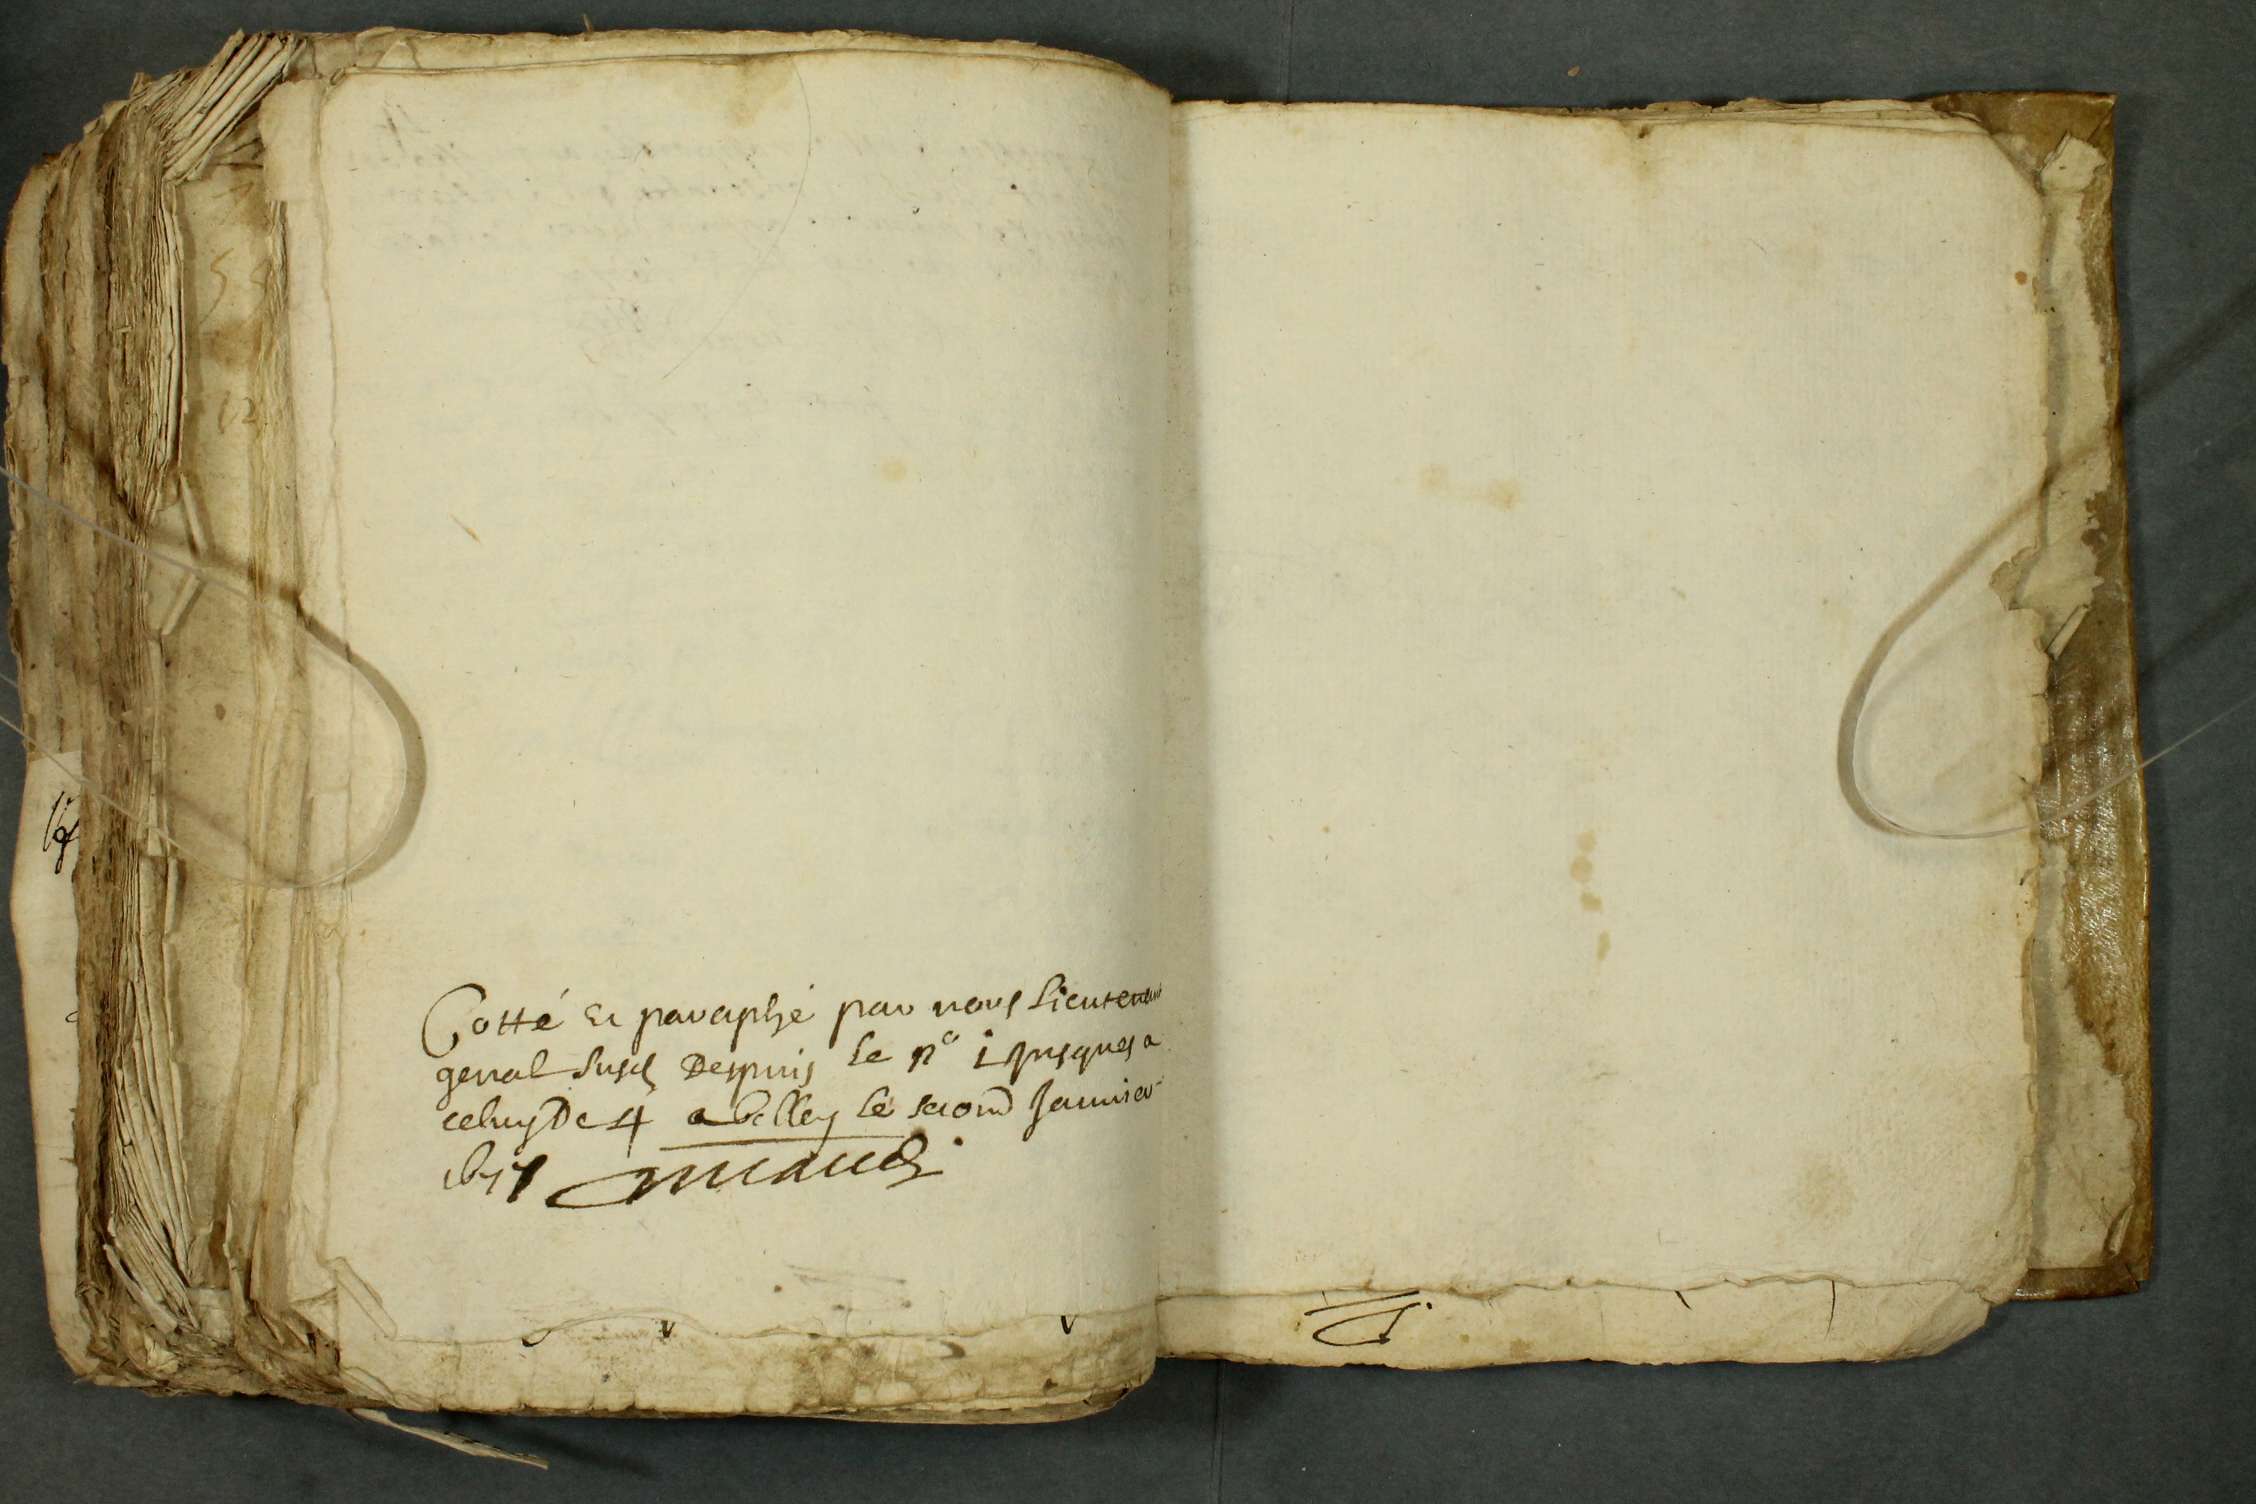 Cotté et paraphé par nous Lieutenant
genal susd Despuis le n° 1 Jusques a
celuy De 4 a Belley le second Januier
1677